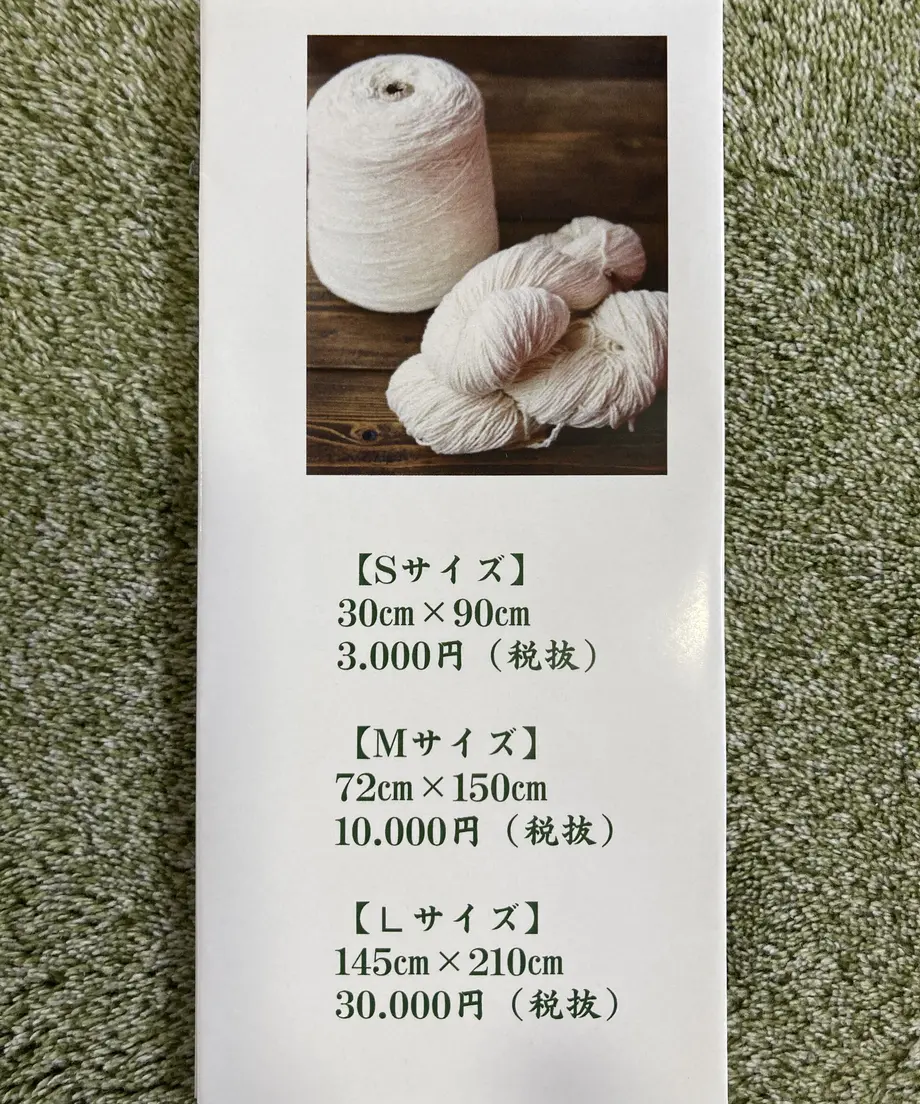 【Sサイズ】
30㎝×90㎝
3.000円（税抜）
【Mサイズ】
72㎝×150㎝
10.000円（税抜）
【Lサイズ】
145㎝×210㎝
30.000円（税抜）